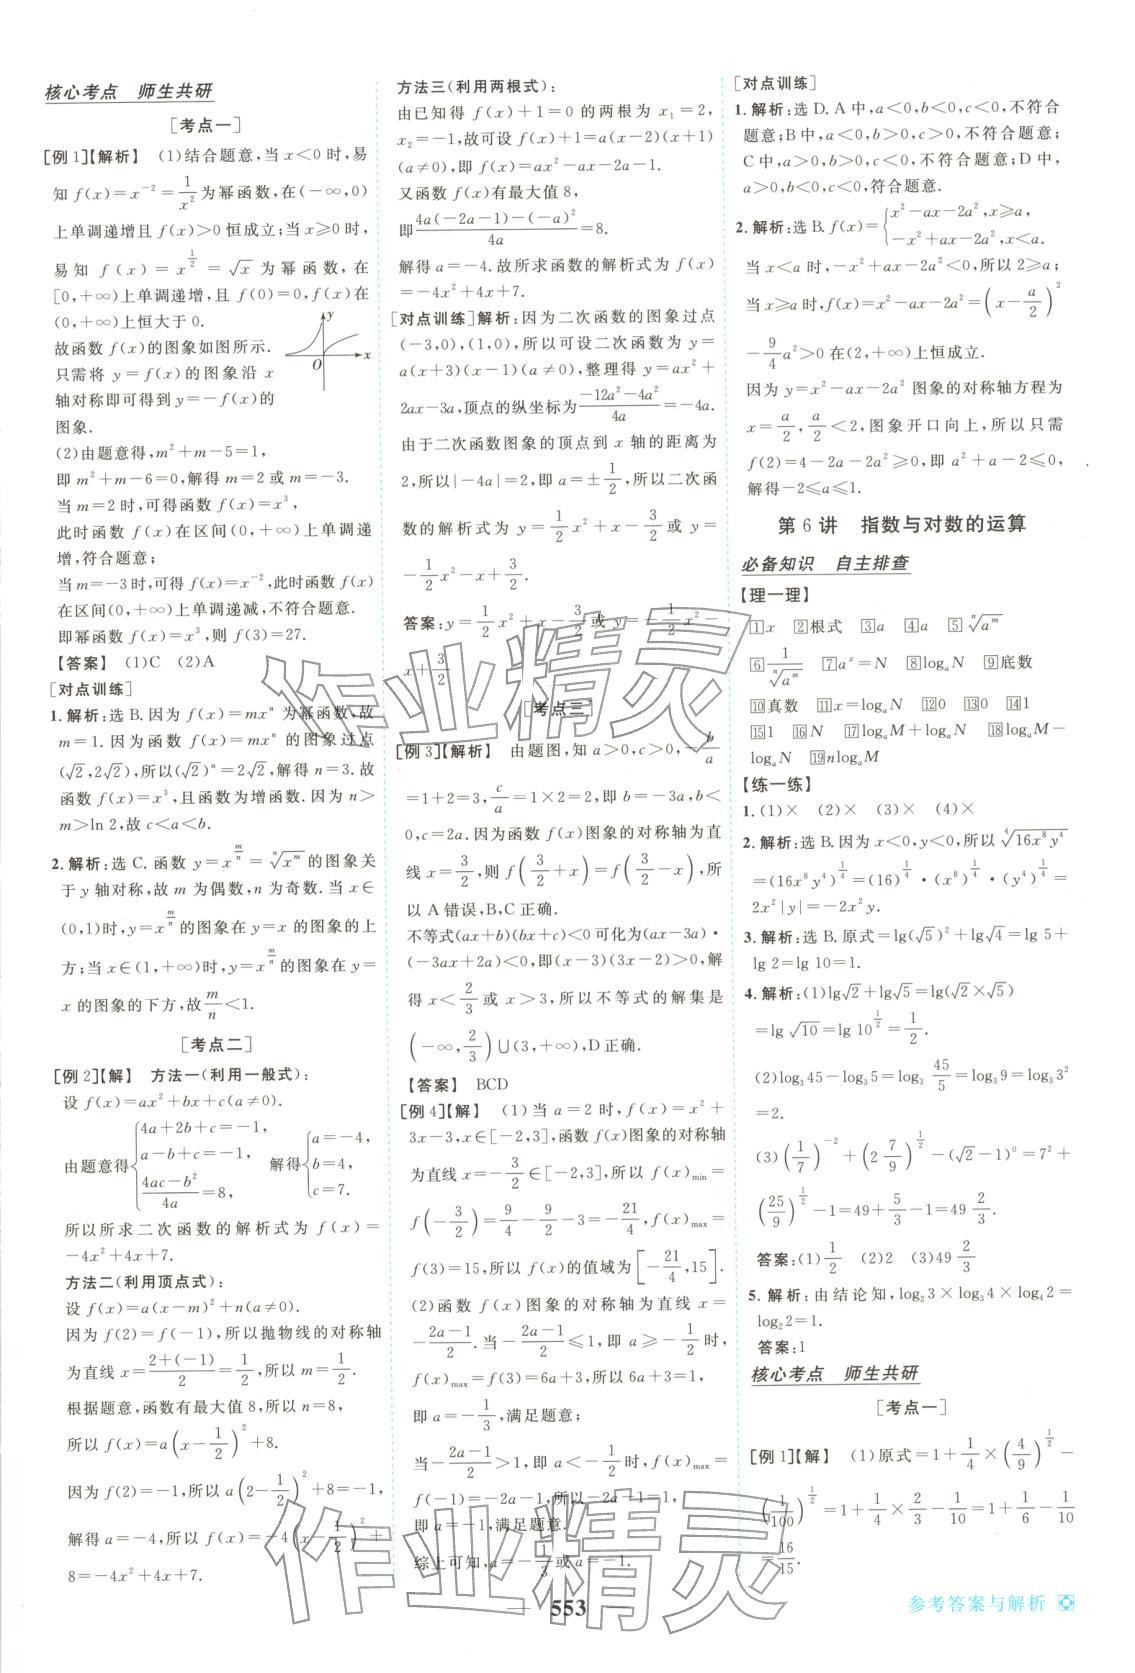 核心考点 师生共研
[考点一]
[例1]【解析】 (1)结合题意,当 x<0 时,易
知 f(x)=x⁻²=1/x² 为幂函数,在(-∞,0)
上单调递增且 f(x)>0 恒成立;当 x≥0 时,
易知 f(x)=x^(1/2)=√x 为幂函数,在
[0,+∞)上单调递增,且 f(0)=0,f(x)在
(0,+∞)上恒大于 0.
故函数 f(x)的图象如图所示.
只需将 y=f(x)的图象沿 x
轴对称即可得到 y=-f(x)的
图象.
y
O
x
(2)由题意得,m²+m-5=1,
即 m²+m-6=0,解得 m=2 或 m=-3.
当 m=2 时,可得函数 f(x)=x³,
此时函数 f(x)在区间(0,+∞)上单调递
增,符合题意;
当 m=-3 时,可得 f(x)=x⁻²,此时函数 f(x)
在区间(0,+∞)上单调递减,不符合题意.
即幂函数 f(x)=x³,则 f(3)=27.
【答案】 (1)C (2)A
[对点训练]
1. 解析:选 B. 因为 f(x)=mxⁿ 为幂函数,故
m=1. 因为函数 f(x)=mxⁿ 的图象过点
(√2,2√2),所以(√2)ⁿ=2√2,解得 n=3. 故
函数 f(x)=x³,且函数为增函数. 因为 n>
m>ln 2,故 c<a<b.
2. 解析:选 C. 函数 y=x^(m/n)=ⁿ√(x^m) 的图象关
于 y 轴对称,故 m 为偶数,n 为奇数. 当 x∈
(0,1)时,y=x^(m/n) 的图象在 y=x 的图象的上
方;当 x∈(1,+∞)时,y=x^(m/n) 的图象在 y=
x 的图象的下方,故 m/n<1.
[考点二]
[例2]【解】 方法一(利用一般式):
设 f(x)=ax²+bx+c(a≠0).
由题意得{4a+2b+c=-1, a-b+c=-1, (4ac-b²)/4a=8, 解得{a=-4, b=4, c=7.
所以所求二次函数的解析式为 f(x)=
-4x²+4x+7.
方法二(利用顶点式):
设 f(x)=a(x-m)²+n(a≠0).
因为 f(2)=f(-1),所以抛物线的对称轴
为直线 x=(2+(-1))/2=1/2,所以 m=1/2.
根据题意,函数有最大值 8,所以 n=8,
所以 f(x)=a(x-1/2)²+8.
因为 f(2)=-1,所以 a(2-1/2)²+8=-1,
解得 a=-4,所以 f(x)=-4(x-1/2)²+
8=-4x²+4x+7.
方法三(利用两根式):
由已知得 f(x)+1=0 的两根为 x₁=2,
x₂=-1,故可设 f(x)+1=a(x-2)(x+1)
(a≠0),即 f(x)=ax²-ax-2a-1.
又函数 f(x)有最大值 8,
即(4a(-2a-1)-(-a)²)/4a=8.
解得 a=-4. 故所求函数的解析式为 f(x)=
-4x²+4x+7.
[对点训练]解析:因为二次函数的图象过点
(-3,0),(1,0),所以可设二次函数为 y=
a(x+3)(x-1)(a≠0),整理得 y=ax²+
2ax-3a,顶点的纵坐标为(-12a²-4a²)/4a=-4a.
由于二次函数图象的顶点到 x 轴的距离为
2,所以|-4a|=2,即 a=±1/2,所以二次函
数的解析式为 y=1/2x²+x-3/2 或 y=
-1/2x²-x+3/2.
答案:y=1/2x²+x-3/2或 y=-1/2x²-
x+3/2
[考点三]
[例3]【解析】 由题图,知 a>0,c>0,-b/a
=1+2=3,c/a=1×2=2,即 b=-3a,b<
0,c=2a. 因为函数 f(x)图象的对称轴为直
线 x=3/2,则 f(3/2+x)=f(3/2-x),所
以 A 错误,B,C 正确.
不等式(ax+b)(bx+c)<0 可化为(ax-3a)·
(-3ax+2a)<0,即(x-3)(3x-2)>0,解
得 x<2/3 或 x>3,所以不等式的解集是
(-∞,2/3)∪(3,+∞),D 正确.
【答案】 BCD
[例4]【解】 (1)当 a=2 时,f(x)=x²+
3x-3,x∈[-2,3],函数 f(x)图象的对称轴
为直线 x=-3/2∈[-2,3],所以 f(x)min=
f(-3/2)=9/4-9/2-3=-21/4,f(x)max=
f(3)=15,所以 f(x)的值域为[-21/4,15].
(2)函数 f(x)图象的对称轴为直线 x=
-(2a-1)/2. 当-(2a-1)/2≤1,即 a≥-1/2时,
f(x)max=f(3)=6a+3,所以 6a+3=1,
即 a=-1/3,满足题意;
当-(2a-1)/2>1,即 a<-1/2时,f(x)max=
f(-1)=-2a-1,所以-2a-1=1,
即 a=-1,满足题意.
综上可知,a=-1/3或 a=-1.
[对点训练]
1. 解析:选 D. A 中,a<0,b<0,c<0,不符合
题意;B 中,a<0,b>0,c>0,不符合题意;
C 中,a>0,b>0,c<0,不符合题意;D 中,
a>0,b<0,c<0,符合题意.
2. 解析:选 B. f(x)={x²-ax-2a²,x≥a, -x²+ax-2a²,x<a.
当 x<a 时,-x²+ax-2a²<0,所以 2≥a;
当 x≥a 时,f(x)=x²-ax-2a²=(x-a/2)²
-9/4a²>0 在(2,+∞)上恒成立.
因为 y=x²-ax-2a² 图象的对称轴方程为
x=a/2,a/2<2,图象开口向上,所以只需
f(2)=4-2a-2a²≥0,即 a²+a-2≤0,
解得-2≤a≤1.
第 6 讲 指数与对数的运算
必备知识 自主排查
【理一理】
1x 2根式 3a 4a 5ⁿ√(a^m)
6 1/ⁿ√(a^m) 7aˣ=N 8logₐN 9底数
10真数 11x=logₐN 12 0 13 0 14 1
15 1 16N 17logₐM+logₐN 18logₐM-
logₐN 19nlogₐM
【练一练】
1. (1)× (2)× (3)× (4)×
2. 解析:选 B. 因为 x<0,y<0,所以⁴√(16x⁸y⁴)
=(16x⁸y⁴)^(1/4)=(16)^(1/4)·(x⁸)^(1/4)·(y⁴)^(1/4)=
2x²|y|=-2x²y.
3. 解析:选 B. 原式=lg(√5)²+lg√4=lg 5+
lg 2=lg 10=1.
4. 解析:(1)lg√2+lg√5=lg(√2×√5)
=lg √10=lg 10^(1/2)=1/2.
(2)log₃45-log₃5=log₃ 45/5=log₃9=log₃3²
=2.
(3)(1/7)⁻²+(2 7/9)^(1/2)-(√2-1)⁰=7²+
(25/9)^(1/2)-1=49+5/3-1=49 2/3.
答案:(1)1/2 (2)2 (3)49 2/3
5. 解析:由结论知,log₂3×log₃4×log₄2=
log₂2=1.
答案:1
核心考点 师生共研
[考点一]
[例1]【解】 (1)原式=1+1/4×(4/9)^(1/2)-
(1/100)^(1/2)=1+1/4×2/3-1/10=1+1/6-1/10
=16/15.
作业精灵
作业精灵
553
参考答案与解析